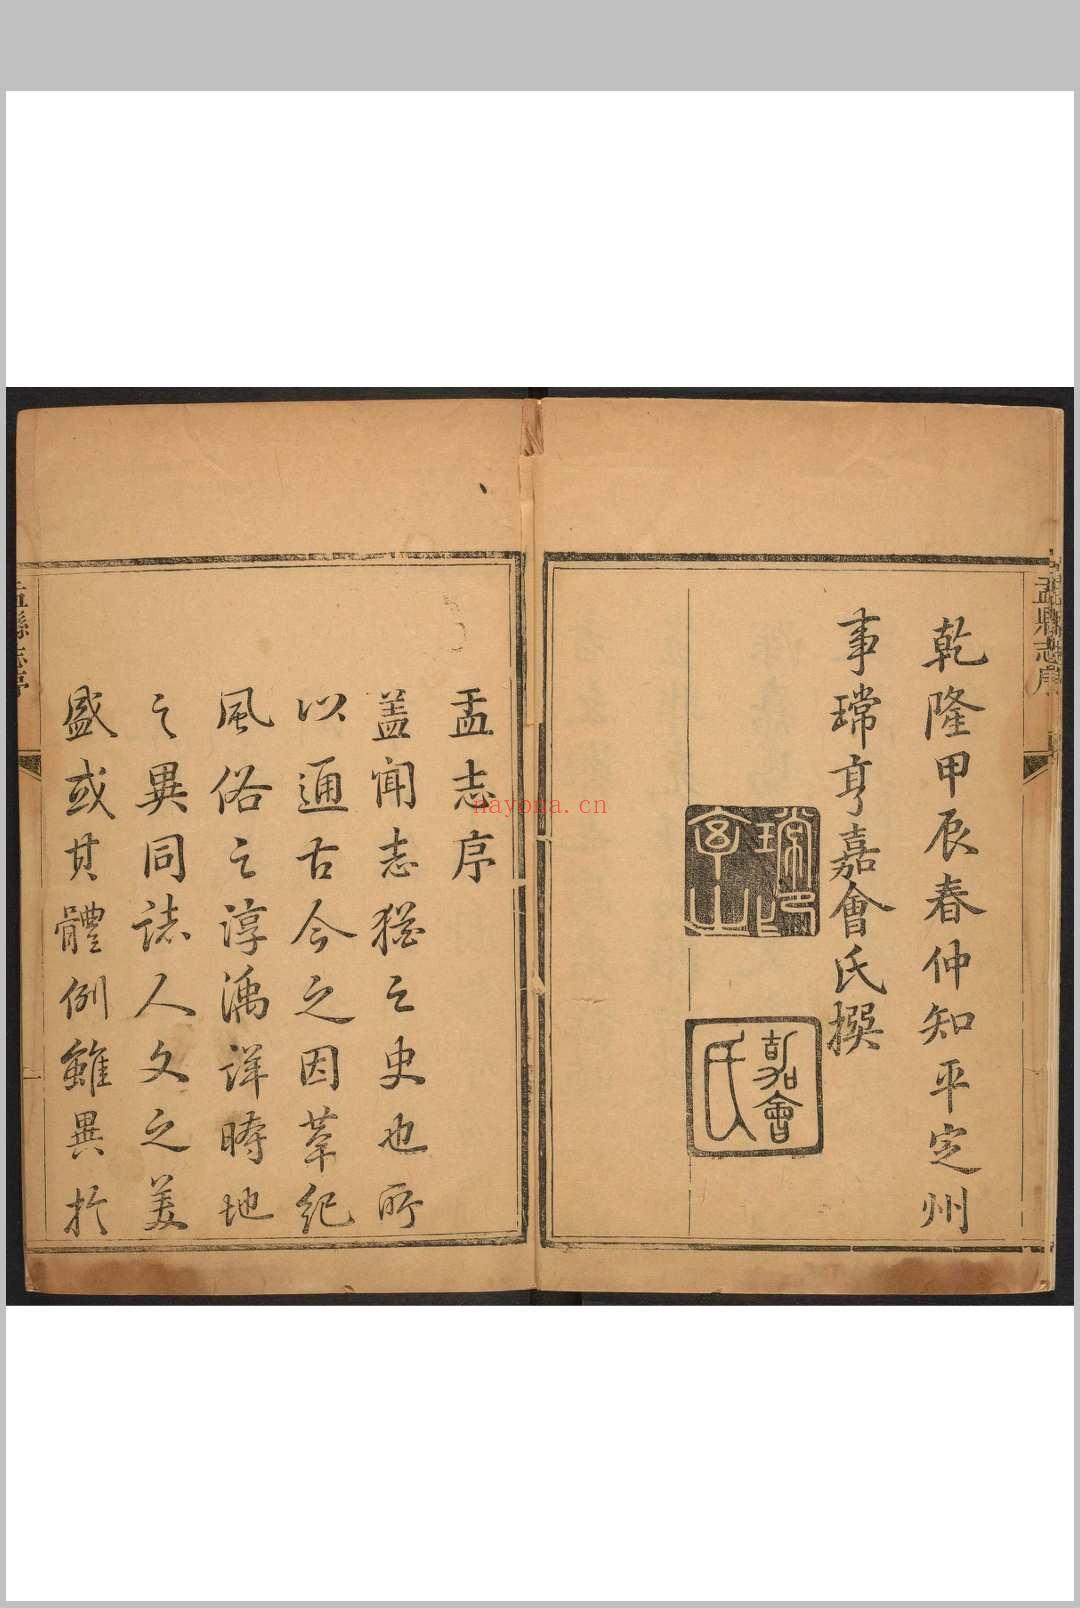 乾隆甲辰春仲知平定州
事瑺亨嘉會氏撰
嘉會
氏
盂縣志序
盂志序
蓋聞志猶之史也所
以通古今之因革紀
風俗之淳漓詳時地
之異同誌人文之美
盛或其體例雖異於
盂縣志序
nayona.cn